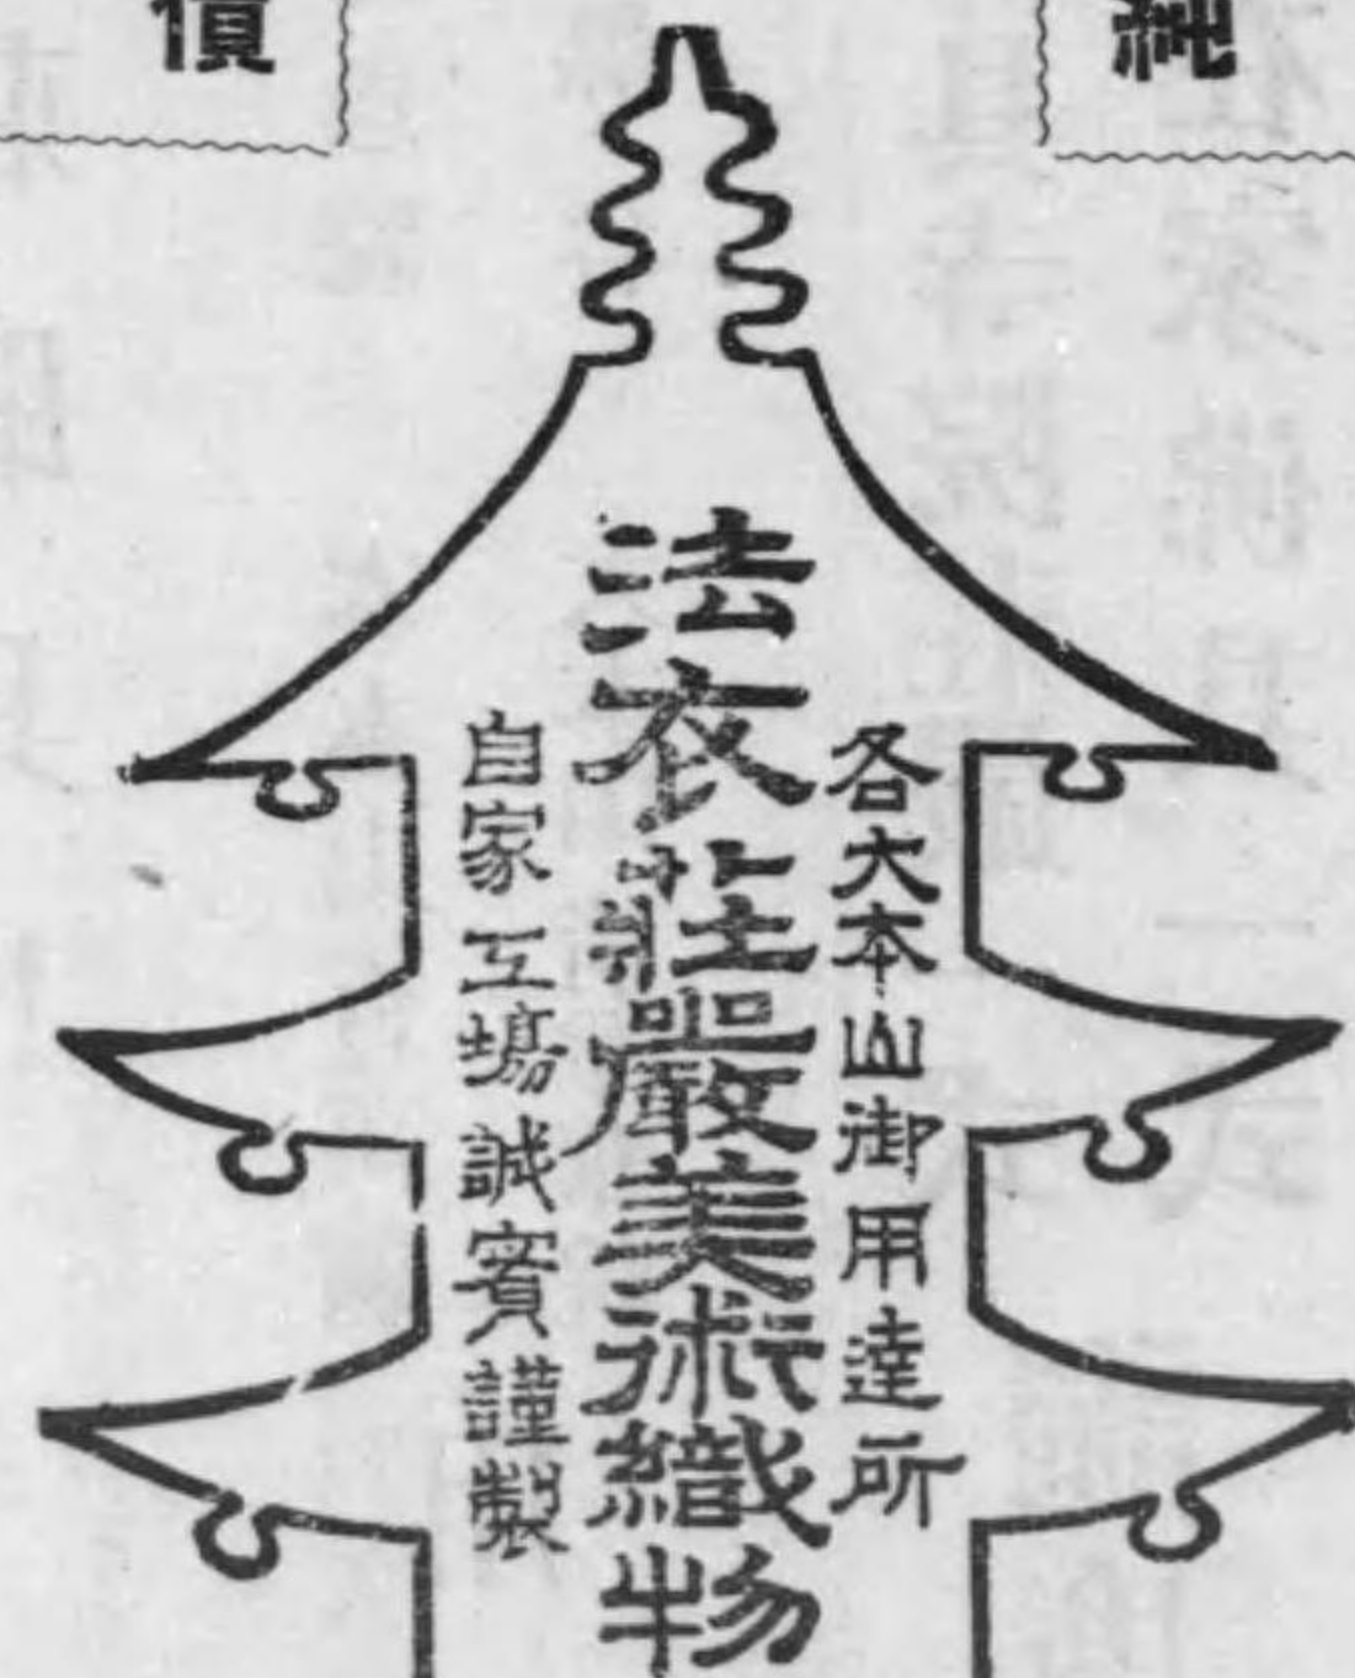 純
各大本山御用達所
法衣莊嚴美術織物
自家工場誠實謹製
價